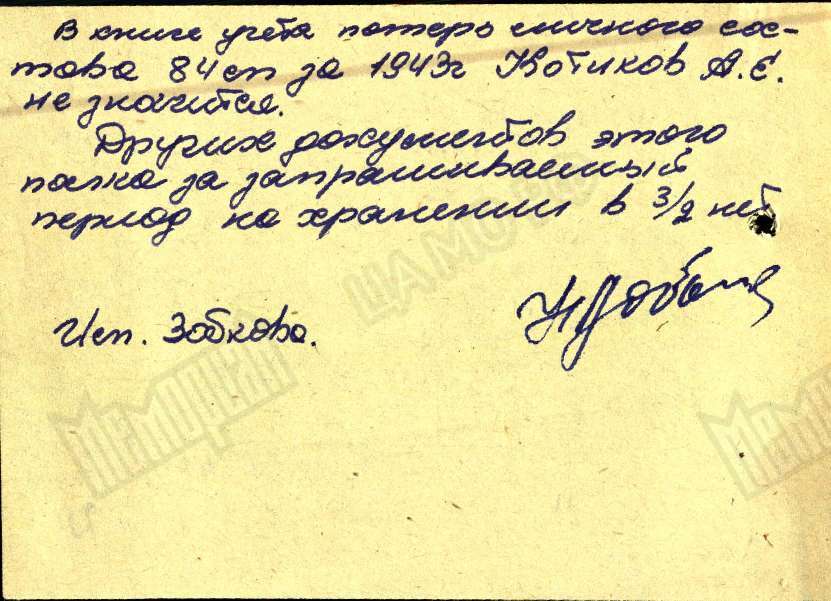 В книге учета потерь личного сос-
тава 84 сп за 1943г Котиков А.Е.
не значится.
Других документов этого
полка за запрашиваемый
период на хранении в 3/2 нет
ЦАМО РФ
Исп. Зобкова.
Мемориал
Мем